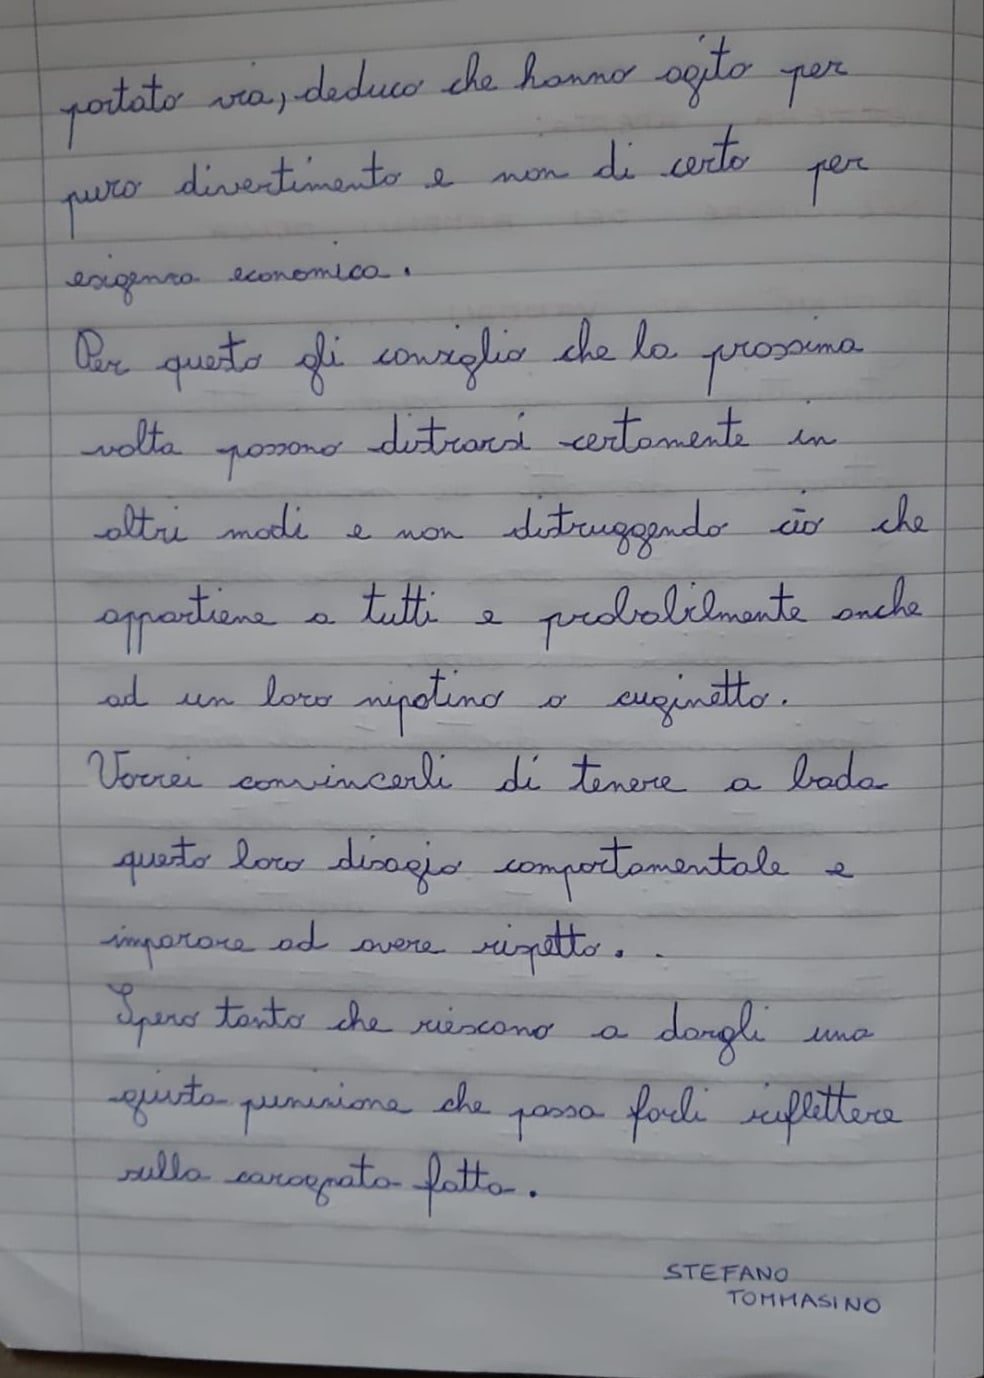 portato via, deduco che hanno agito per
puro divertimento e non di certo per
esigenza economica.
Per questo gli consiglio che la prossima
volta possono distrarsi certamente in
altri modi e non distruggendo ciò che
appartiene a tutti e probabilmente anche
ad un loro nipotino o cuginetto.
Vorrei convincerli di tenere a bada
questo loro disagio comportamentale e
imparare ad avere rispetto.
Spero tanto che riescano a dargli una
giusta punizione che possa farli riflettere
sulla carognata fatta.
STEFANO
TOMMASINO